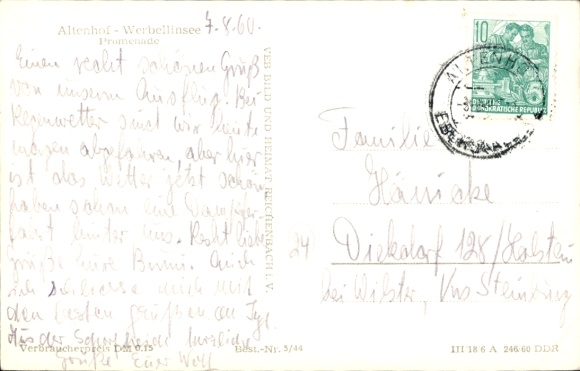 Altenhof - Werbellinsee
Promenade
7.8.60.
Einen recht schönen Gruß
von unserm Ausflug. Bei
Regenwetter sind wir heute
morgen abgefahren, aber hier
ist das Wetter jetzt schön
haben schon eine Dampfer-
fahrt hinter uns. Recht liebe
Grüße Eure Bunni. Auch
ich schliesse mich mit
den besten Grüßen an
Aus der Schorfheide herzliche
Grüße Euer Wolf
Verbraucherpreis DM 0,15
Best.-Nr. 5/44
VEB BILD UND HEIMAT REICHENBACH I. V.
10
DEUTSCHE
DEMOKRATISCHE REPUBLIK
ALTENHOF
EBERSWALDE
Familie
Hänicke
24
Diekdorf 128/Holstein
bei Wilster, Krs Steinburg
III 18 6 A 246/60 DDR